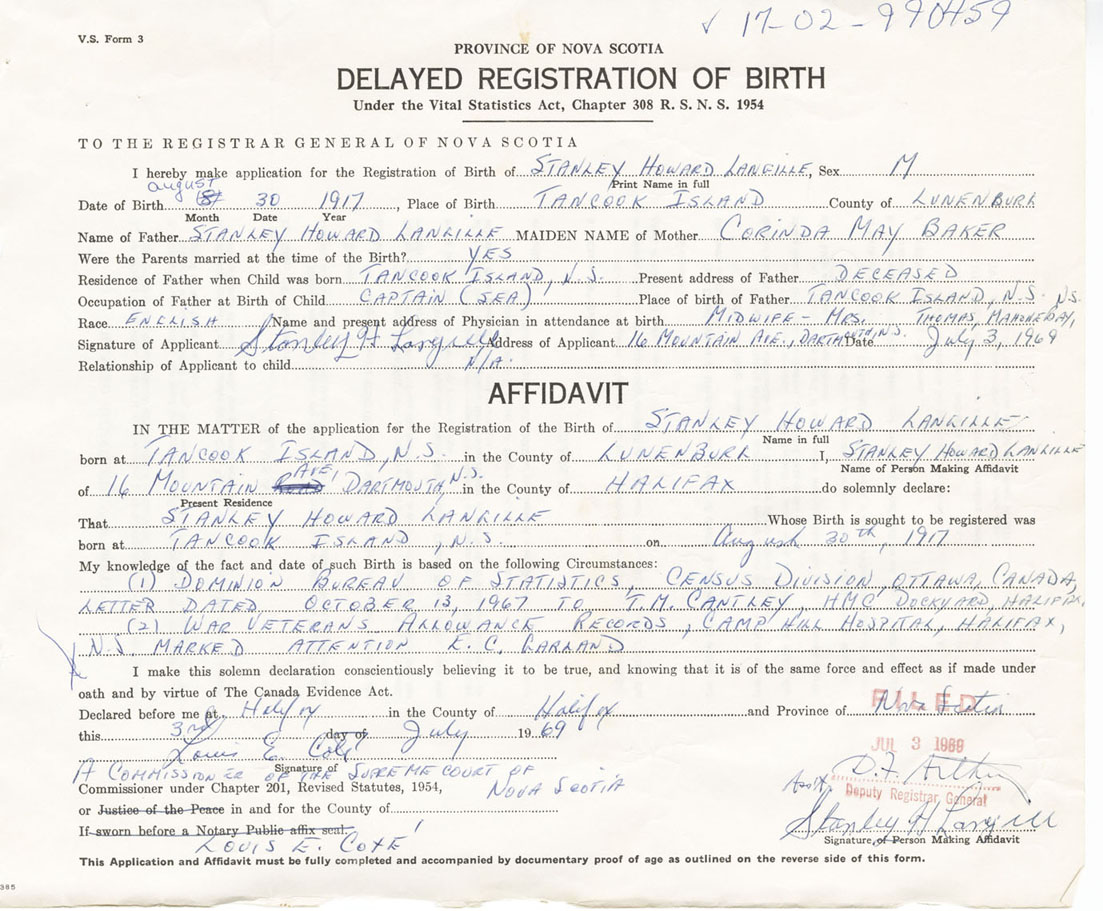 ✓ 17-02-990459
V.S. Form 3
PROVINCE OF NOVA SCOTIA
DELAYED REGISTRATION OF BIRTH
Under the Vital Statistics Act, Chapter 308 R. S. N. S. 1954
TO THE REGISTRAR GENERAL OF NOVA SCOTIA
I hereby make application for the Registration of Birth of STANLEY HOWARD LANGILLE, Sex M
Print Name in full
august
Date of Birth 30 1917, Place of Birth TANCOOK ISLAND County of LUNENBURG
Month Date Year
Name of Father STANLEY HOWARD LANGILLE MAIDEN NAME of Mother CORINDA MAY BAKER
Were the Parents married at the time of the Birth? YES
Residence of Father when Child was born TANCOOK ISLAND, N.S. Present address of Father DECEASED
Occupation of Father at Birth of Child CAPTAIN (SEA) Place of birth of Father TANCOOK ISLAND, N.S.
Race ENGLISH Name and present address of Physician in attendance at birth MIDWIFE - MRS. THOMAS, MAHONE BAY, N.S.
Signature of Applicant Stanley H Langille Address of Applicant 16 MOUNTAIN AVE., DARTMOUTH, N.S. Date July 3, 1969
Relationship of Applicant to child N/A.
AFFIDAVIT
IN THE MATTER of the application for the Registration of the Birth of STANLEY HOWARD LANGILLE
Name in full
born at TANCOOK ISLAND, N.S. in the County of LUNENBURG I, STANLEY HOWARD LANGILLE
Name of Person Making Affidavit
of 16 MOUNTAIN AVE, DARTMOUTH, N.S. in the County of HALIFAX do solemnly declare:
Present Residence
That STANLEY HOWARD LANGILLE Whose Birth is sought to be registered was
born at TANCOOK ISLAND, N.S. on August 30th, 1917
My knowledge of the fact and date of such Birth is based on the following Circumstances:
(1) DOMINION BUREAU OF STATISTICS, CENSUS DIVISION OTTAWA, CANADA,
LETTER DATED OCTOBER 13, 1967 TO T.M. CANTLEY, HMC DOCKYARD, HALIFAX,
(2) WAR VETERANS ALLOWANCE RECORDS, CAMP HILL HOSPITAL, HALIFAX,
N.S. MARKED ATTENTION E.C. GARLAND
I make this solemn declaration conscientiously believing it to be true, and knowing that it is of the same force and effect as if made under
oath and by virtue of The Canada Evidence Act.
FILED
Declared before me at Halifax in the County of Halifax and Province of Nova Scotia
this 3rd day of July 1969
JUL 3 1969
Louis E. Coté
Signature of
A COMMISSIONER OF THE SUPREME COURT OF
NOVA SCOTIA
Commissioner under Chapter 201, Revised Statutes, 1954,
Ass't
Deputy Registrar General
or Justice of the Peace in and for the County of
Stanley H Langille
If sworn before a Notary Public affix seal.
Signature of Person Making Affidavit
LOUIS E. COTÉ
This Application and Affidavit must be fully completed and accompanied by documentary proof of age as outlined on the reverse side of this form.
385